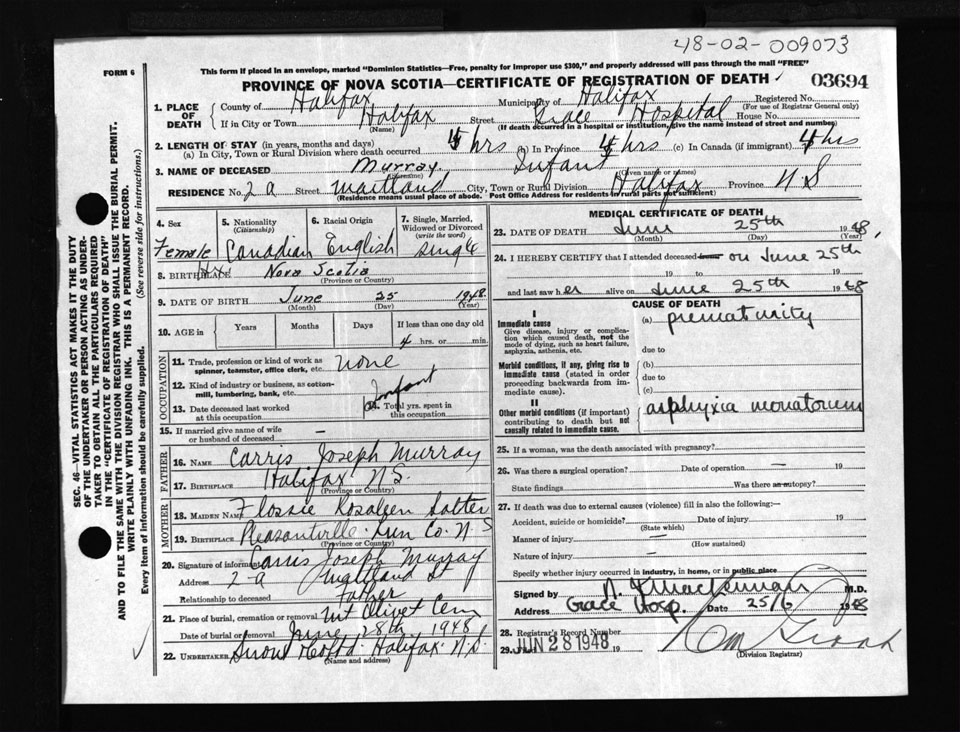 48-02-009073
FORM 6
This form if placed in an envelope, marked "Dominion Statistics—Free, penalty for improper use $300," and properly addressed will pass through the mail "FREE"
PROVINCE OF NOVA SCOTIA—CERTIFICATE OF REGISTRATION OF DEATH
03694
SEC. 46—VITAL STATISTICS ACT MAKES IT THE DUTY
OF THE UNDERTAKER OR PERSON ACTING AS UNDER-
TAKER TO OBTAIN ALL THE PARTICULARS REQUIRED
IN THE "CERTIFICATE OF REGISTRATION OF DEATH"
AND TO FILE THE SAME WITH THE DIVISION REGISTRAR WHO SHALL ISSUE THE BURIAL PERMIT.
WRITE PLAINLY WITH UNFADING INK. THIS IS A PERMANENT RECORD.
Every item of information should be carefully supplied. (See reverse side for instructions.)
1. PLACE OF DEATH
County of Halifax Municipality of Halifax Registered No.
(For use of Registrar General only)
If in City or Town Halifax Street Grace Hospital House No.
(Name) (If death occurred in a hospital or institution, give the name instead of street and number)
2. LENGTH OF STAY (in years, months and days)
(a) In City, Town or Rural Division where death occurred 4 hrs (b) In Province 4 hrs (c) In Canada (if immigrant) 4 hrs
3. NAME OF DECEASED Murray. Infant
(Surname) (Given name or names)
RESIDENCE No. 2 a Street Maitland City, Town or Rural Division Halifax Province N S
(Residence means usual place of abode. Post Office Address for residents in rural parts not sufficient)
4. Sex 5. Nationality (Citizenship) 6. Racial Origin 7. Single, Married, Widowed or Divorced (write the word)
Female Canadian English single
8. BIRTHPLACE Hx Nova Scotia
(Province or Country)
9. DATE OF BIRTH June 25 1948
(Month) (Day) (Year)
10. AGE in Years Months Days If less than one day old
4 hrs. or min.
OCCUPATION
11. Trade, profession or kind of work as spinner, teamster, office clerk, etc. none
12. Kind of industry or business, as cotton-mill, lumbering, bank, etc. Infant
13. Date deceased last worked at this occupation 14. Total yrs. spent in this occupation
15. If married give name of wife or husband of deceased —
FATHER
16. NAME Carris Joseph Murray
17. BIRTHPLACE Halifax N.S.
(Province or Country)
MOTHER
18. MAIDEN NAME Flossie Rosaleen Salter
19. BIRTHPLACE Pleasantville Lun Co. N.S
(Province or Country)
20. Signature of informant Carris Joseph Murray
Address 2-a Maitland St
Relationship to deceased Father
21. Place of burial, cremation or removal Mt Olivet Cem
Date of burial or removal June 28th, 1948
22. Undertaker Snow Halifax. N.S.
(Name and address)
MEDICAL CERTIFICATE OF DEATH
23. DATE OF DEATH June 25th 1948
(Month) (Day) (Year)
24. I HEREBY CERTIFY that I attended deceased from on June 25th
19 to 19
and last saw her alive on June 25th 1948
CAUSE OF DEATH
I
Immediate cause
Give disease, injury or complication which caused death, not the mode of dying, such as heart failure, asphyxia, asthenia, etc.
(a) prematurity
due to
Morbid conditions, if any, giving rise to immediate cause (stated in order proceeding backwards from immediate cause).
(b)
due to
(c)
II
Other morbid conditions (if important) contributing to death but not causally related to immediate cause.
asphyxia
25. If a woman, was the death associated with pregnancy?
26. Was there a surgical operation? Date of operation — 19
State findings Was there an autopsy?
27. If death was due to external causes (violence) fill in also the following:—
Accident, suicide or homicide? Date of injury 19
(State which)
Manner of injury —
(How sustained)
Nature of injury —
Specify whether injury occurred in industry, in home, or in public place
Signed by M.D.
Address Grace Hosp. Date 25/6 1948
28. Registrar's Record Number
29. Filed JUN 28 1948 19
(Division Registrar)